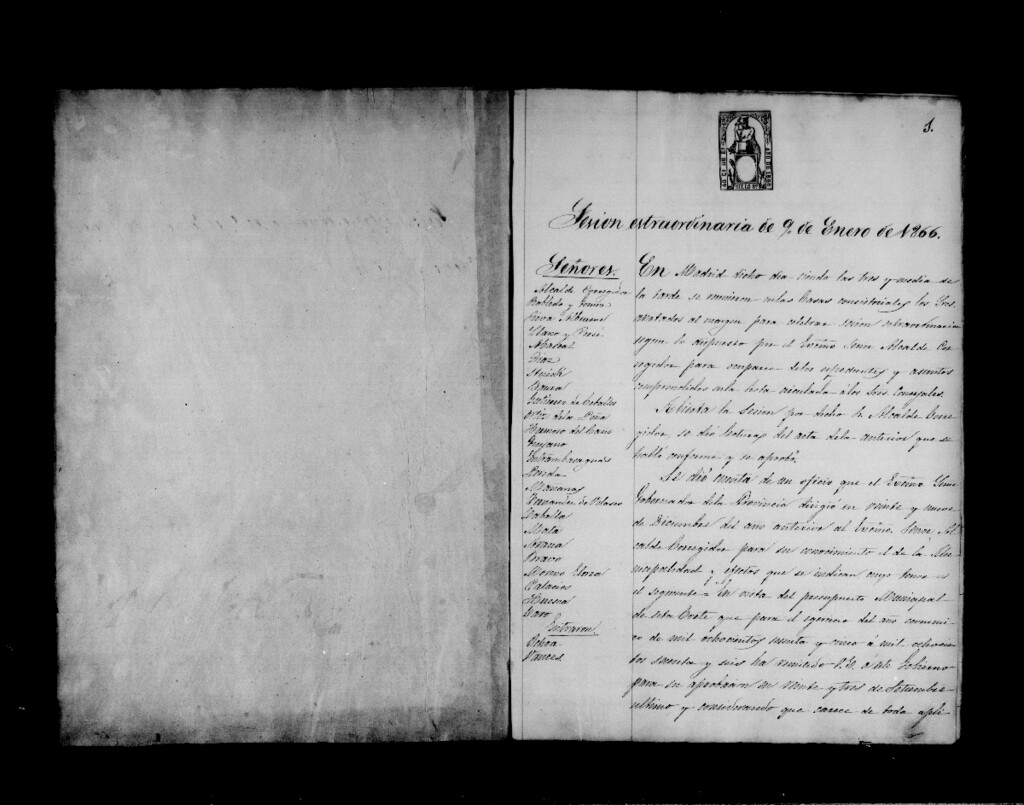 1.
Sesion extraordinaria de 9 de Enero de 1866.
Señores.
Alcalde Corregidor
Robledo y
Llano y
Diaz
Segura
Gutierrez de Ceballos
Ortiz de la Peña
Hermoso del Caño
Entrambasaguas
Fernandez de Velasco
Mata
Arana
Bravo
Moreno Elorza
Palacios
Huesca
Entraron
Ochoa
En Madrid dicho dia siendo las tres y media de
la tarde se reunieron en las Casas consistoriales los Sres.
anotados al margen para celebrar sesion extraordinaria
segun lo dispuesto por el Excmo Señor Alcalde Cor-
regidor para ocuparse de los espedientes y asuntos
comprendidos en la lista circulada á los Sres Concejales.
Abierta la sesion por dicho Sr Alcalde Corre-
gidor, se dió lectura del acta de la anterior que se
halló conforme y se aprobó.
Se dió cuenta de un oficio que el Excmo Señor
Gobernador de la Provincia dirigió en veinte y nueve
de Diciembre del año anterior al Excmo. Señor Al-
calde Corregidor para su conocimiento el de la Mu-
nicipalidad y efectos que se indican cuyo tenor es
el siguiente = En vista del presupuesto Municipal
de esta Corte que para el egercicio del año economi-
co de mil ochocientos sesenta y cinco á mil ochocien-
tos sesenta y seis ha remitido V.E. á este Gobierno
para su aprobacion en veinte y tres de Setiembre
ultimo y considerando que carece de toda apli-